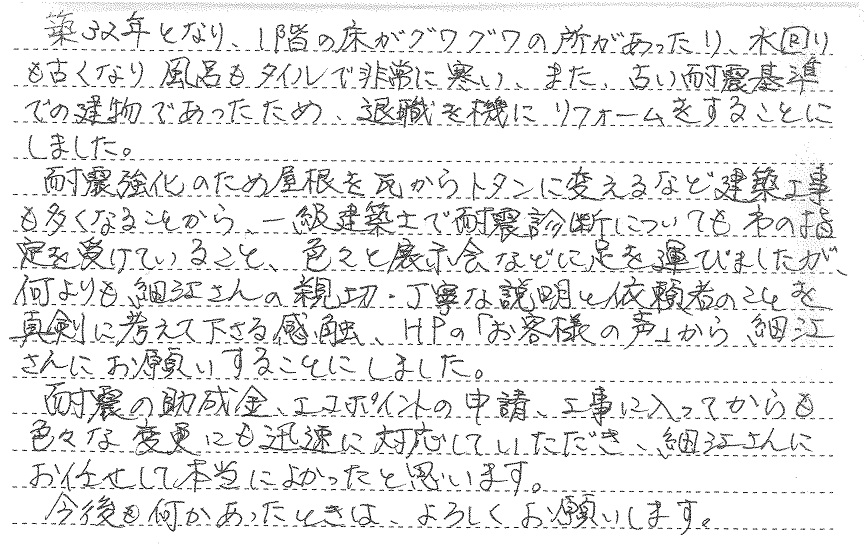 築32年となり、1階の床がグワグワの所があったり、水回り
も古くなり風呂もタイルで非常に寒い、また、古い耐震基準
での建物であったため、退職を機にリフォームをすることに
しました。
耐震強化のため屋根を瓦からトタンに変えるなど建築工事
も多くなることから、一級建築士で耐震診断についても市の指
定を受けていること、色々と展示会などに足を運びましたが、
何よりも細江さんの親切・丁寧な説明と依頼者のことを
真剣に考えて下さる感触、HPの「お客様の声」から細江
さんにお願いすることにしました。
耐震の助成金、エコポイントの申請、工事に入ってからも
色々な変更にも迅速に対応していただき、細江さんに
お任せして本当によかったと思います。
今後も何かあったときは、よろしくお願いします。